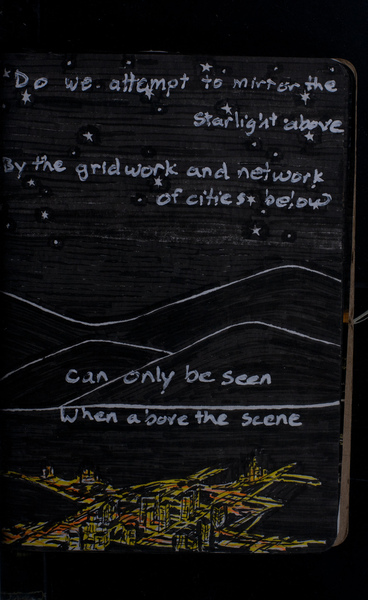 Do we attempt to mirror the
starlight above
By the gridwork and network
of cities below
can only be seen
When above the scene